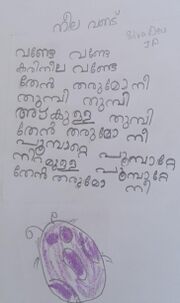 നീല വണ്ട്
Siva Dev
വണ്ടേ വണ്ടേ
കരിനീല വണ്ടേ
തേൻ തരുമോ നീ
തുമ്പി തുമ്പി
അഴകുള്ള തുമ്പി
തേൻ തരുമോ നീ
പൂമ്പാറ്റേ പൂമ്പാറ്റേ
നിറമുള്ള പൂമ്പാറ്റേ
തേൻ തരുമോ നീ